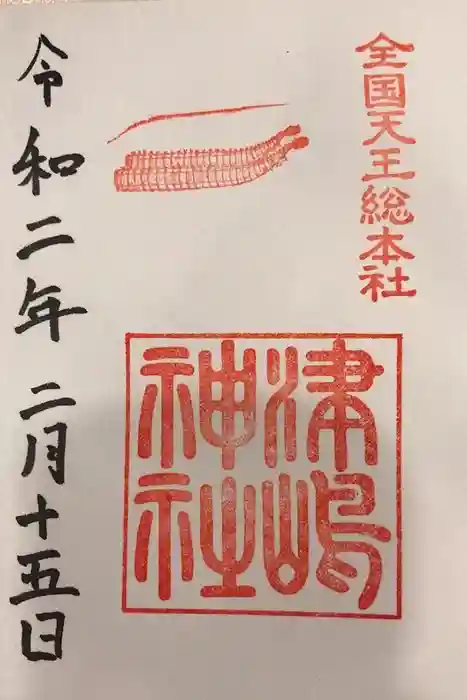 全国天王総本社
津嶋
神社
令和二年二月十五日